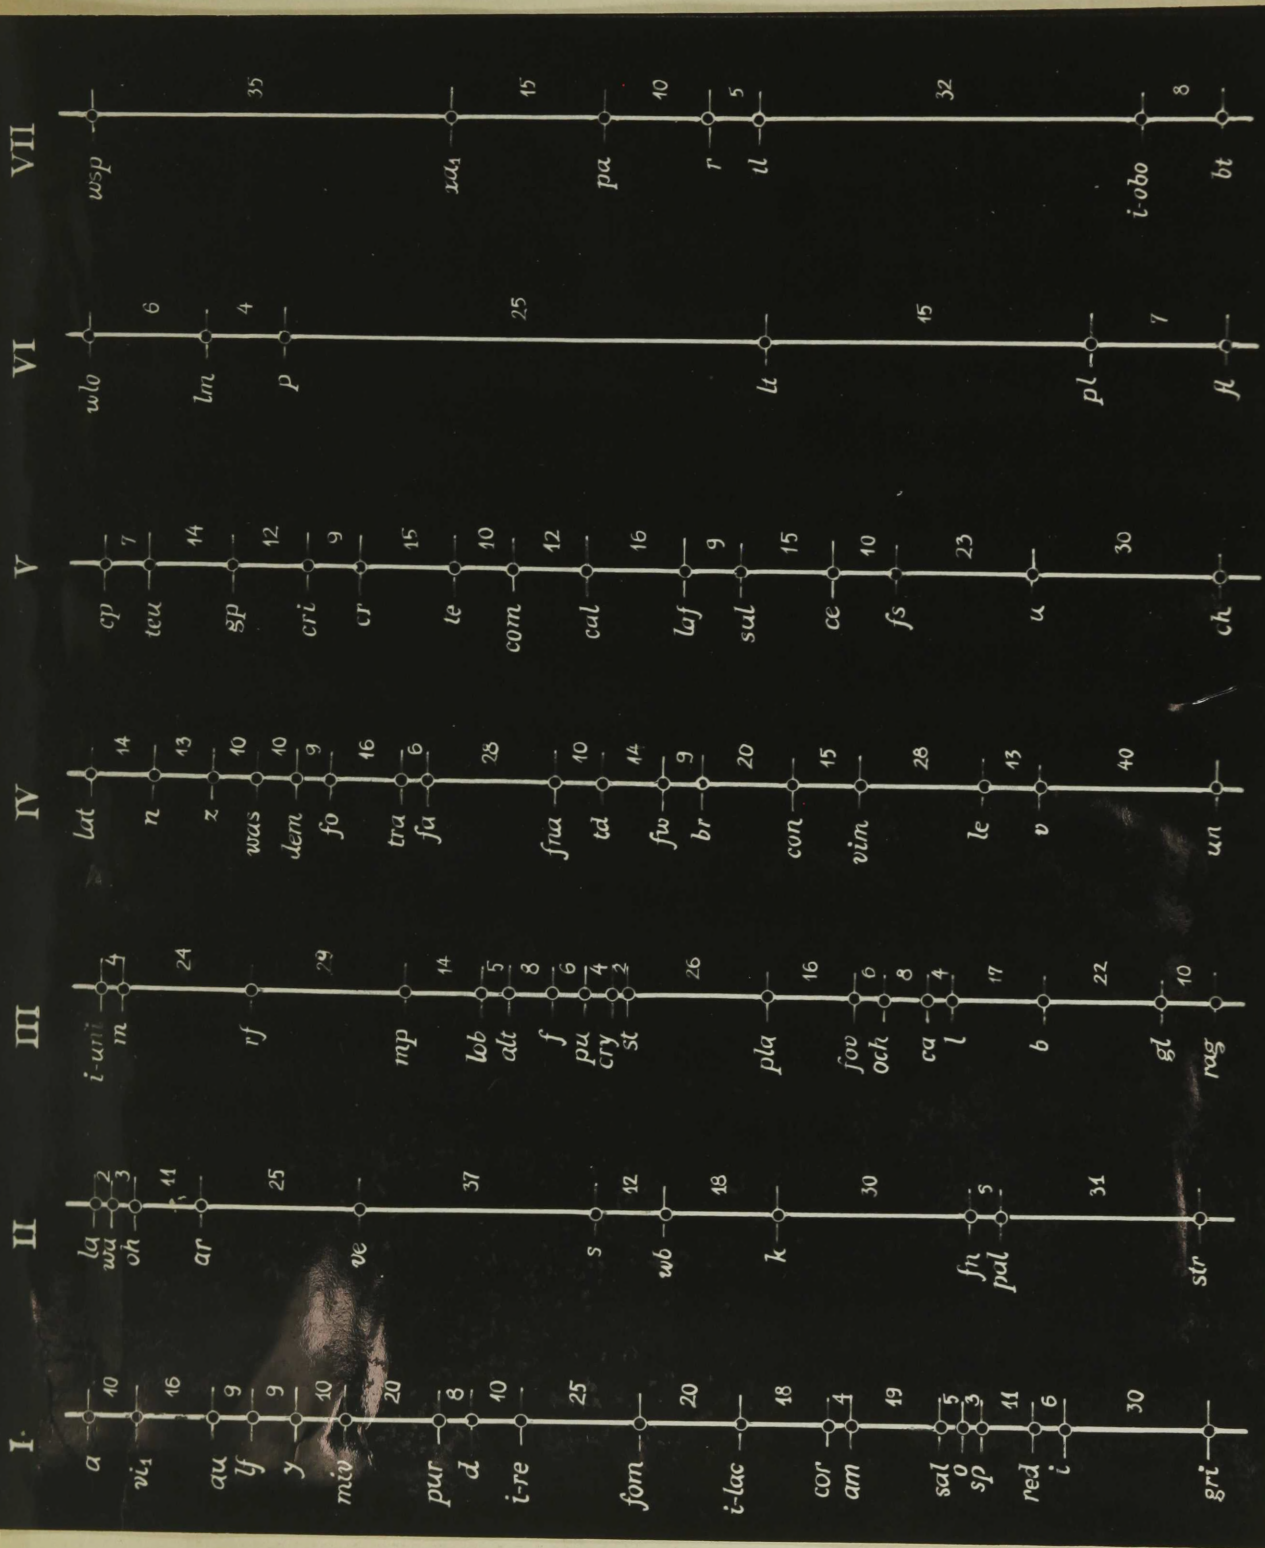 I. II III IV V VI VII
a
10
vi₁
16
au
9
lf
9
y
10
miv
20
pur
8
d
10
i-re
25
fom
20
i-lac
18
cor
4
am
19
sal
5
o
3
sp
11
red
6
i
30
gri
la
2
wa
3
oh
11
ar
25
ve
37
s
12
wb
18
k
30
fn
5
pal
31
str
i-uni
4
m
24
rf
29
mp
14
lob
5
alt
8
f
6
pu
4
cry
2
st
26
pla
16
fov
6
och
8
ca
4
l
17
b
22
gl
10
rag
lat
14
n
13
z
10
was
10
dem
9
fo
16
tra
6
fa
28
fna
10
td
14
fw
9
br
20
con
15
vim
28
le
13
v
40
un
cp
7
teu
14
gp
12
cri
9
cr
15
te
10
com
12
cal
16
laf
9
sul
15
ce
10
fs
23
u
30
ch
wlo
6
lm
4
p
25
lt
15
pl
7
fl
wsp
35
xa₁
15
pa
10
r
5
tl
32
i-obo
8
bt